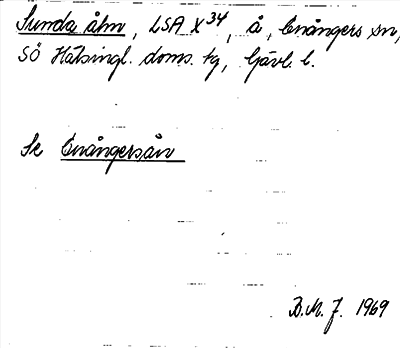 Sunda åhn, LSA X 34, å, Enångers sn,
SÖ Hälsingl. doms. tg, Gävl. l.
Se Enångersån
B.M.J. 1969